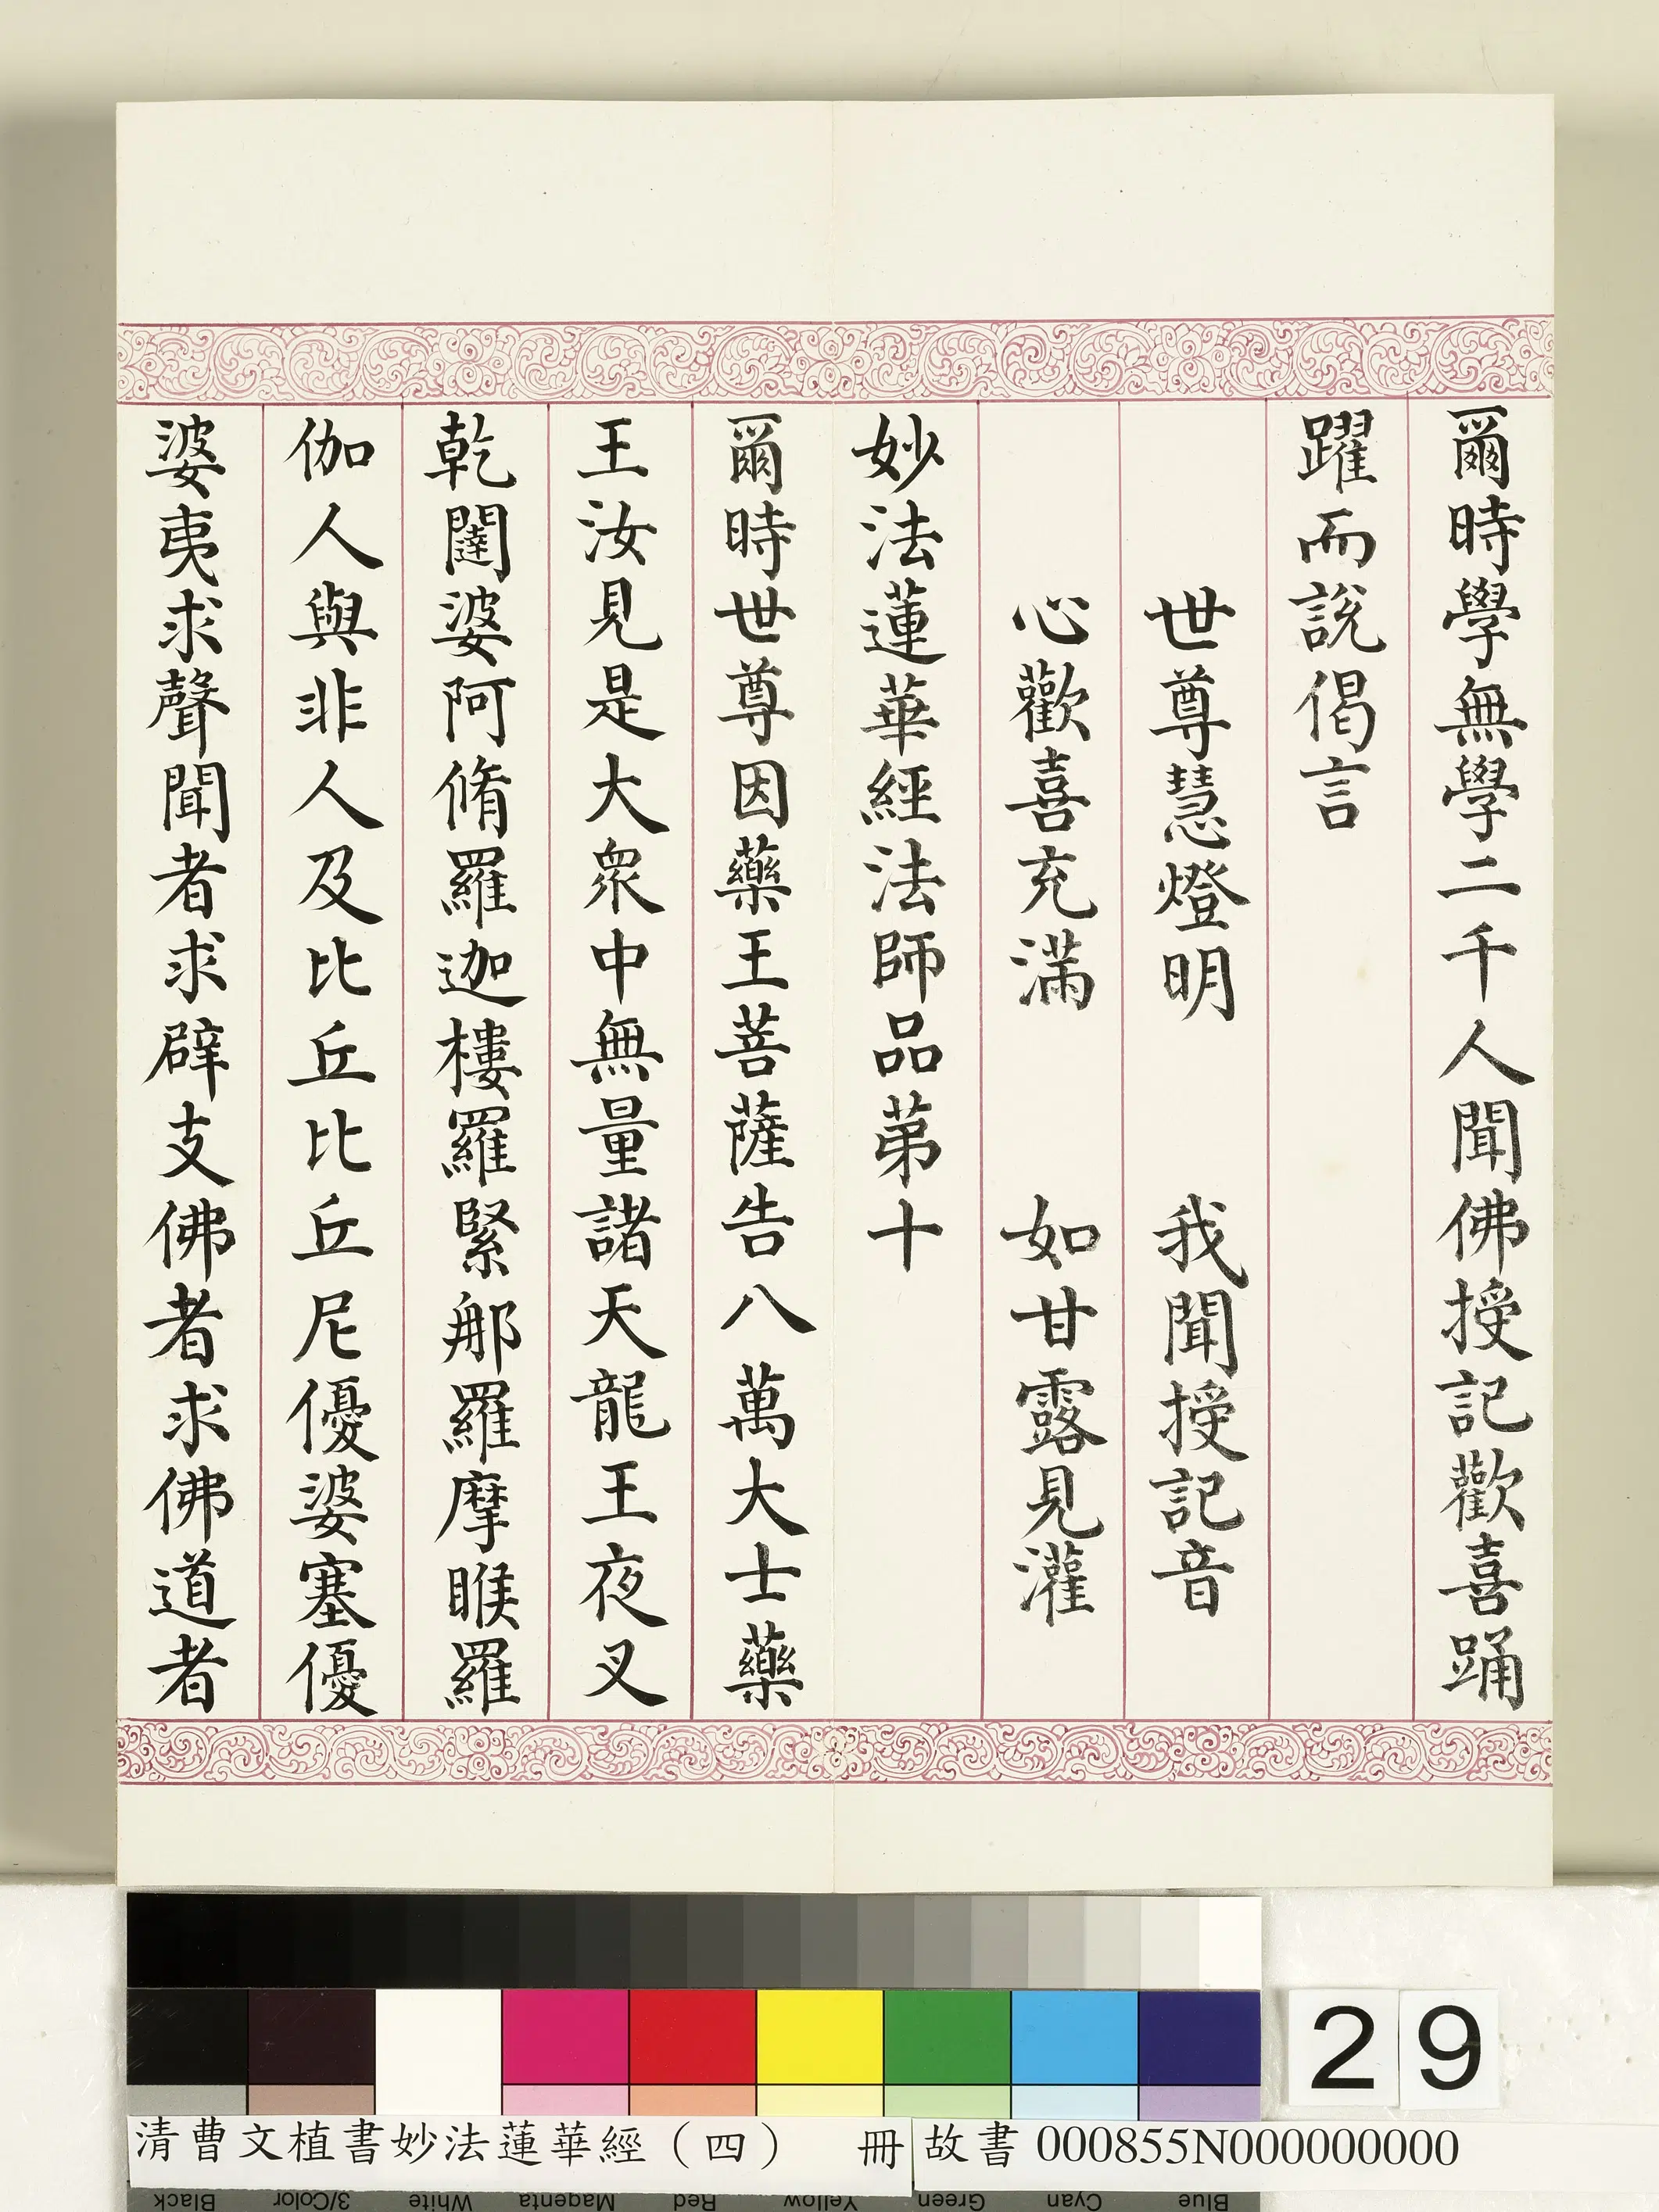 爾時學無學二千人聞佛授記歡喜踊
躍而說偈言
世尊慧燈明 我聞授記音
心歡喜充滿 如甘露見灌
妙法蓮華經法師品第十
爾時世尊因藥王菩薩告八萬大士藥
王汝見是大衆中無量諸天龍王夜叉
乾闥婆阿脩羅迦樓羅緊那羅摩睺羅
伽人與非人及比丘比丘尼優婆塞優
婆夷求聲聞者求辟支佛者求佛道者
29
清曹文植書妙法蓮華經（四） 冊 故書 000855N000000000
Black 3/Color White Magenta Red Yellow Green Cyan Blue